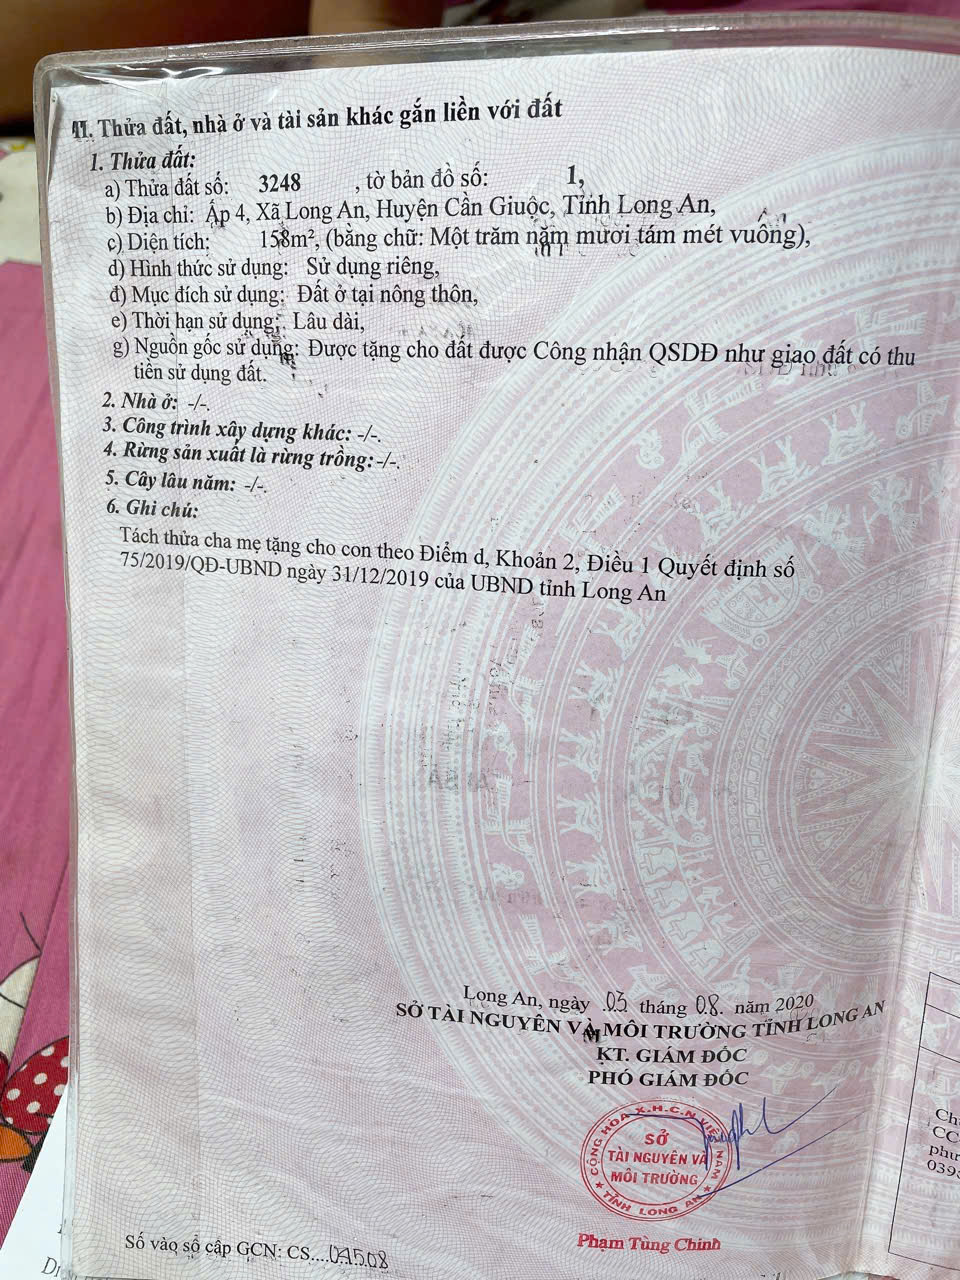 II. Thửa đất, nhà ở và tài sản khác gắn liền với đất
1. Thửa đất:
a) Thửa đất số: 3248 , tờ bản đồ số: 1,
b) Địa chỉ: Ấp 4, Xã Long An, Huyện Cần Giuộc, Tỉnh Long An,
c) Diện tích: 158m², (bằng chữ: Một trăm năm mươi tám mét vuông),
d) Hình thức sử dụng: Sử dụng riêng,
đ) Mục đích sử dụng: Đất ở tại nông thôn,
e) Thời hạn sử dụng: Lâu dài,
g) Nguồn gốc sử dụng: Được tặng cho đất được Công nhận QSDĐ như giao đất có thu
tiền sử dụng đất.
2. Nhà ở: -/-.
3. Công trình xây dựng khác: -/-.
4. Rừng sản xuất là rừng trồng: -/-.
5. Cây lâu năm: -/-.
6. Ghi chú:
Tách thửa cha mẹ tặng cho con theo Điểm d, Khoản 2, Điều 1 Quyết định số
75/2019/QĐ-UBND ngày 31/12/2019 của UBND tỉnh Long An
Long An, ngày 03 tháng 08. năm 2020
SỞ TÀI NGUYÊN VÀ MÔI TRƯỜNG TỈNH LONG AN
KT. GIÁM ĐỐC
PHÓ GIÁM ĐỐC
CỘNG HÒA X.H.C.N VIỆT NAM
SỞ
TÀI NGUYÊN VÀ
MÔI TRƯỜNG
TỈNH LONG AN
Phạm Tùng Chinh
Số vào sổ cấp GCN: CS....04508
CC
phư
039